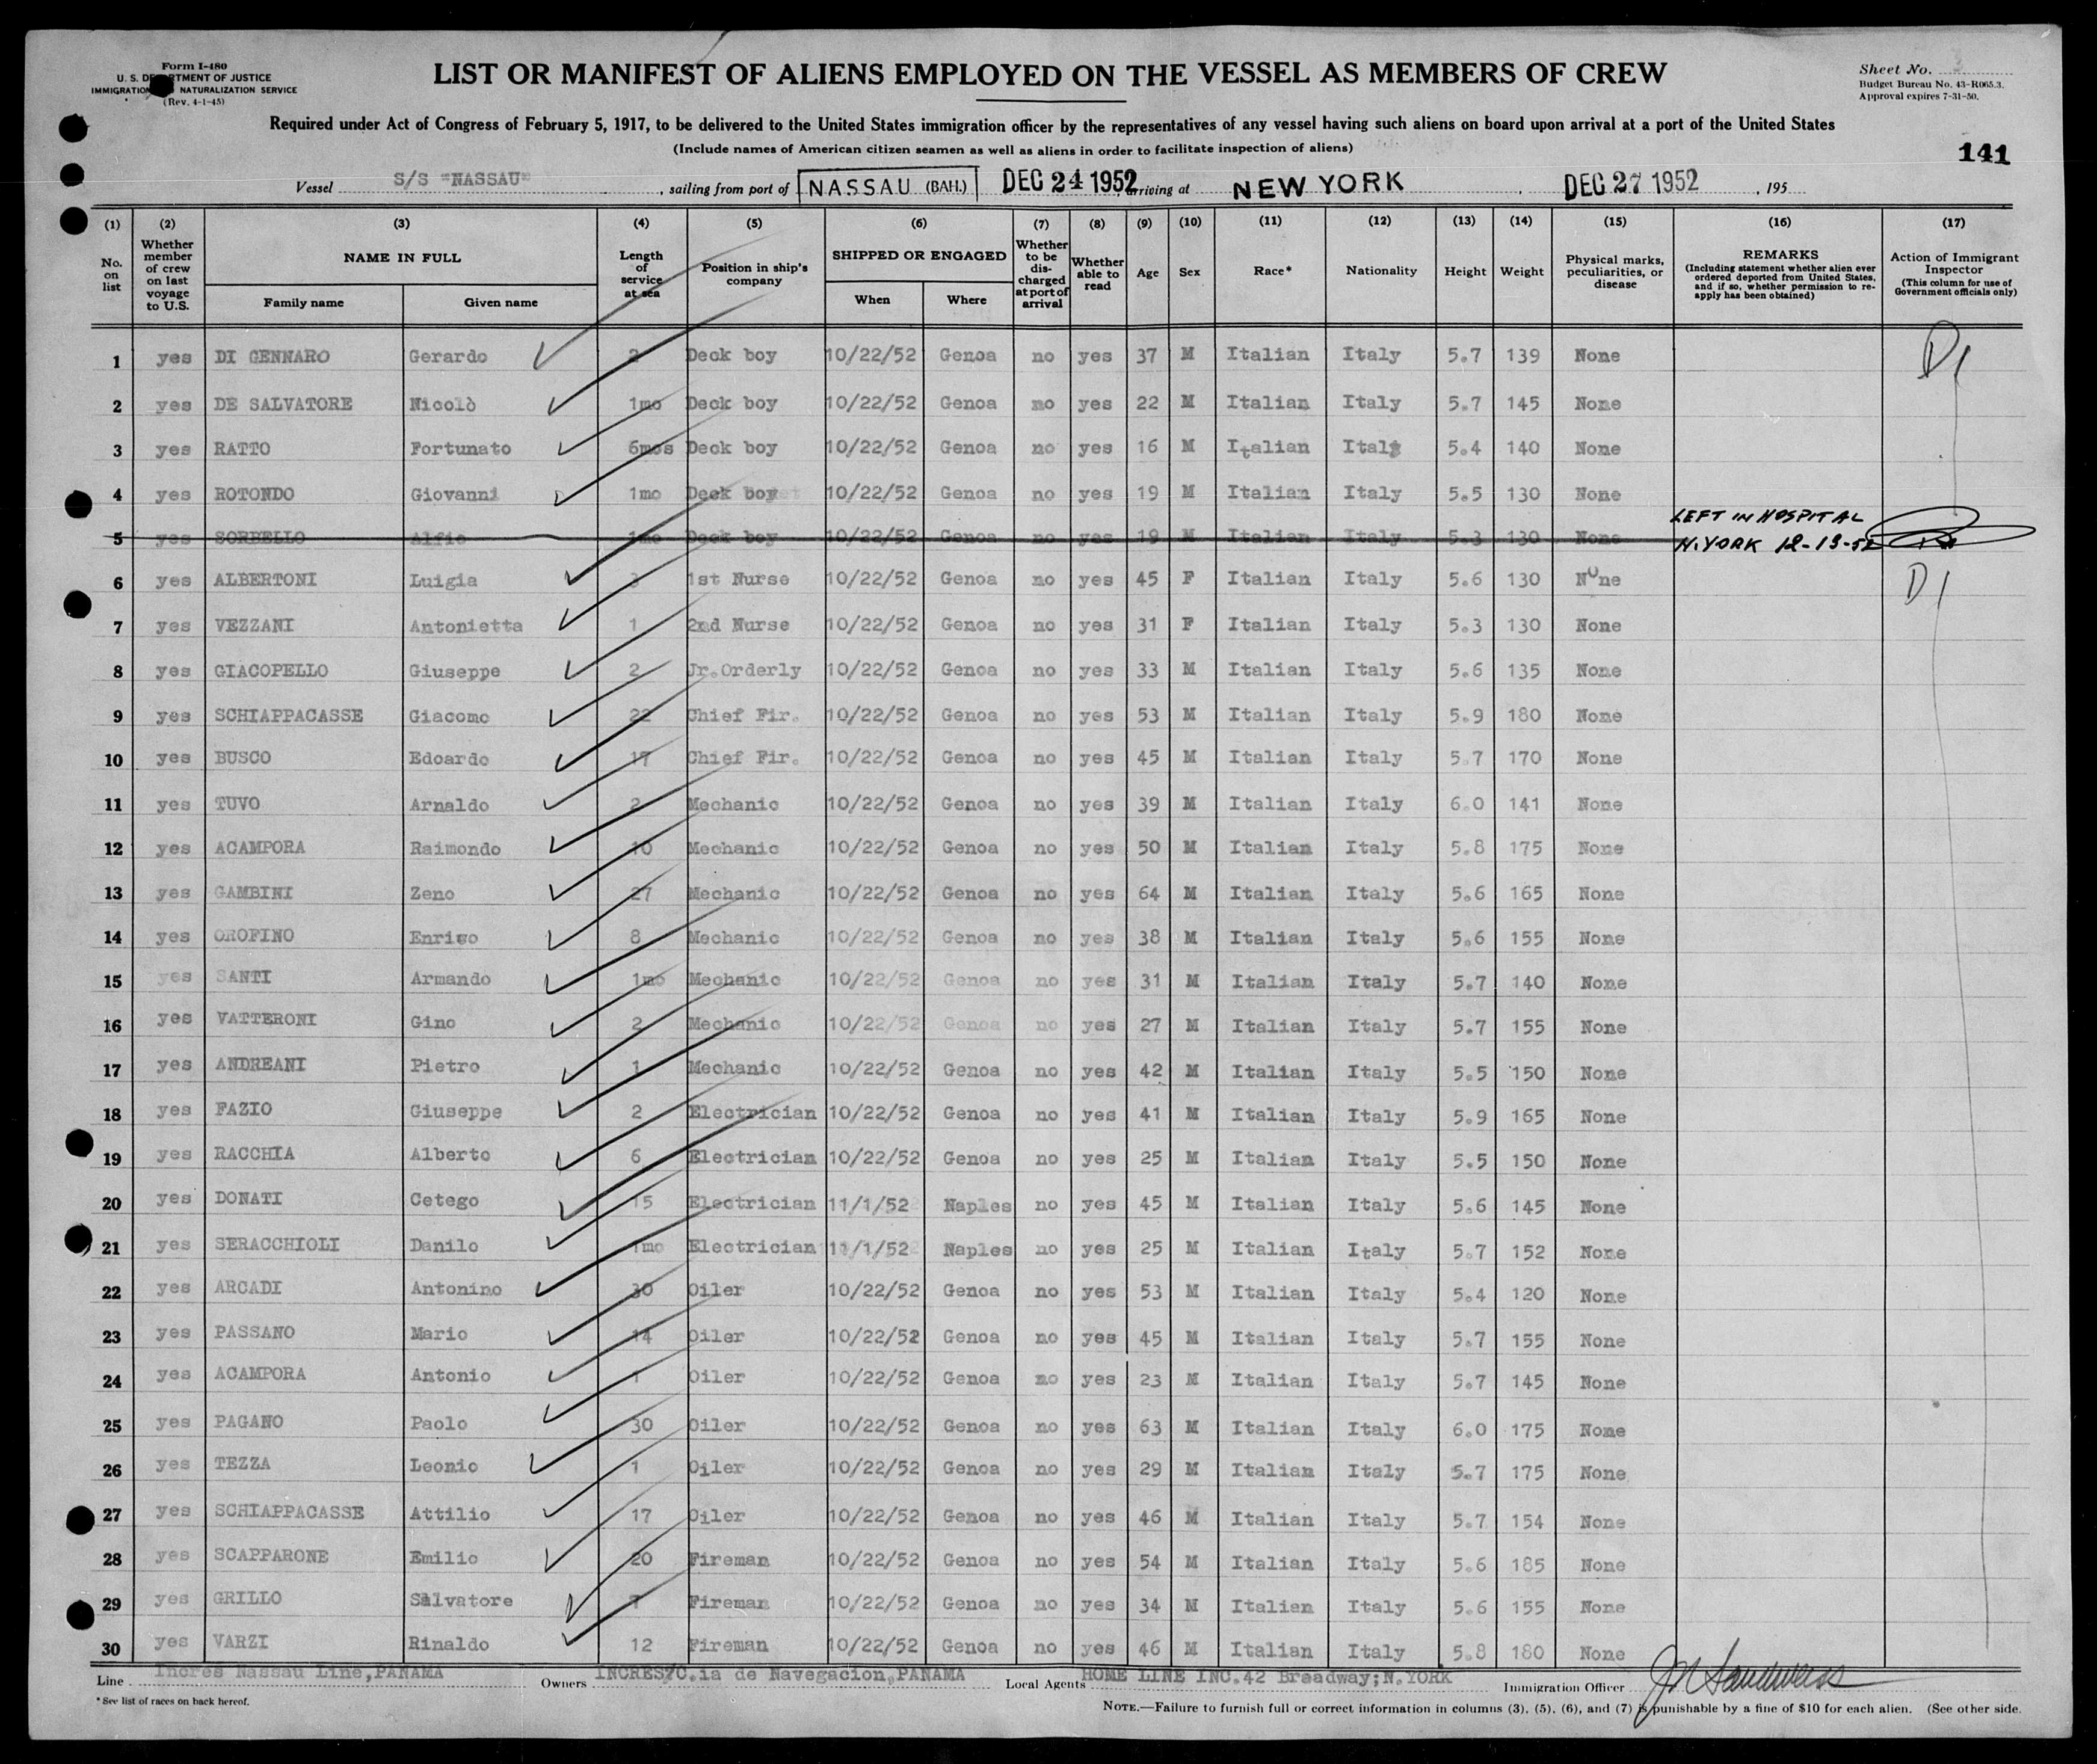 Form I-480
U. S. DEPARTMENT OF JUSTICE
IMMIGRATION NATURALIZATION SERVICE
(Rev. 4-1-45)
LIST OR MANIFEST OF ALIENS EMPLOYED ON THE VESSEL AS MEMBERS OF CREW
Sheet No. 3
Budget Bureau No. 43-R065.3.
Approval expires 7-31-50.
Required under Act of Congress of February 5, 1917, to be delivered to the United States immigration officer by the representatives of any vessel having such aliens on board upon arrival at a port of the United States
(Include names of American citizen seamen as well as aliens in order to facilitate inspection of aliens)
141
Vessel S/S "NASSAU", sailing from port of NASSAU (BAH.) DEC 24 1952, arriving at NEW YORK, DEC 27 1952, 195
(1) (2) (3) (4) (5) (6) (7) (8) (9) (10) (11) (12) (13) (14) (15) (16) (17)
No. on list
Whether member of crew on last voyage to U.S.
NAME IN FULL
Family name
Given name
Length of service at sea
Position in ship's company
SHIPPED OR ENGAGED
When
Where
Whether to be discharged at port of arrival
Whether able to read
Age
Sex
Race*
Nationality
Height
Weight
Physical marks, peculiarities, or disease
REMARKS
(Including statement whether alien ever ordered deported from United States, and if so, whether permission to reapply has been obtained)
Action of Immigrant Inspector
(This column for use of Government officials only)
1 yes DI GENNARO Gerardo 2 Deck boy 10/22/52 Genoa no yes 37 M Italian Italy 5.7 139 None D/
2 yes DE SALVATORE Nicolò 1mo Deck boy 10/22/52 Genoa no yes 22 M Italian Italy 5.7 145 None
3 yes RATTO Fortunato 6mos Deck boy 10/22/52 Genoa no yes 16 M Italian Italy 5.4 140 None
4 yes ROTONDO Giovanni 1mo Deck boy 10/22/52 Genoa no yes 19 M Italian Italy 5.5 130 None
5 yes SORBELLO Alfio 1mo Deck boy 10/22/52 Genoa no yes 19 M Italian Italy 5.3 130 None LEFT IN HOSPITAL
N.YORK 12-13-52
6 yes ALBERTONI Luigia 3 1st Nurse 10/22/52 Genoa no yes 45 F Italian Italy 5.6 130 None D/
7 yes VEZZANI Antonietta 1 2nd Nurse 10/22/52 Genoa no yes 31 F Italian Italy 5.3 130 None
8 yes GIACOPELLO Giuseppe 2 Jr.Orderly 10/22/52 Genoa no yes 33 M Italian Italy 5.6 135 None
9 yes SCHIAPPACASSE Giacomo 22 Chief Fir. 10/22/52 Genoa no yes 53 M Italian Italy 5.9 180 None
10 yes BUSCO Edoardo 17 Chief Fir. 10/22/52 Genoa no yes 45 M Italian Italy 5.7 170 None
11 yes TUVO Arnaldo 2 Mechanic 10/22/52 Genoa no yes 39 M Italian Italy 6.0 141 None
12 yes ACAMPORA Raimondo 10 Mechanic 10/22/52 Genoa no yes 50 M Italian Italy 5.8 175 None
13 yes GAMBINI Zeno 27 Mechanic 10/22/52 Genoa no yes 64 M Italian Italy 5.6 165 None
14 yes OROFINO Enrico 8 Mechanic 10/22/52 Genoa no yes 38 M Italian Italy 5.6 155 None
15 yes SANTI Armando 1mo Mechanic 10/22/52 Genoa no yes 31 M Italian Italy 5.7 140 None
16 yes VATTERONI Gino 2 Mechanic 10/22/52 Genoa no yes 27 M Italian Italy 5.7 155 None
17 yes ANDREANI Pietro 1 Mechanic 10/22/52 Genoa no yes 42 M Italian Italy 5.5 150 None
18 yes FAZIO Giuseppe 2 Electrician 10/22/52 Genoa no yes 41 M Italian Italy 5.9 165 None
19 yes RACCHIA Alberto 6 Electrician 10/22/52 Genoa no yes 25 M Italian Italy 5.5 150 None
20 yes DONATI Cetego 15 Electrician 11/1/52 Naples no yes 45 M Italian Italy 5.6 145 None
21 yes SERACCHIOLI Danilo 1mo Electrician 11/1/52 Naples no yes 25 M Italian Italy 5.7 152 None
22 yes ARCADI Antonino 30 Oiler 10/22/52 Genoa no yes 53 M Italian Italy 5.4 120 None
23 yes PASSANO Mario 14 Oiler 10/22/52 Genoa no yes 45 M Italian Italy 5.7 155 None
24 yes ACAMPORA Antonio 1 Oiler 10/22/52 Genoa no yes 23 M Italian Italy 5.7 145 None
25 yes PAGANO Paolo 30 Oiler 10/22/52 Genoa no yes 63 M Italian Italy 6.0 175 None
26 yes TEZZA Leonio 1 Oiler 10/22/52 Genoa no yes 29 M Italian Italy 5.7 175 None
27 yes SCHIAPPACASSE Attilio 17 Oiler 10/22/52 Genoa no yes 46 M Italian Italy 5.7 154 None
28 yes SCAPPARONE Emilio 20 Fireman 10/22/52 Genoa no yes 54 M Italian Italy 5.6 185 None
29 yes GRILLO Salvatore 7 Fireman 10/22/52 Genoa no yes 34 M Italian Italy 5.6 155 None
30 yes VARZI Rinaldo 12 Fireman 10/22/52 Genoa no yes 46 M Italian Italy 5.8 180 None
Line Incres Nassau Line,PANAMA Owners INCRES/C.ia de Navegacion,PANAMA Local Agents HOME LINE INC.42 Broadway;N.YORK Immigration Officer
* See list of races on back hereof.
NOTE.—Failure to furnish full or correct information in columns (3), (5), (6), and (7) is punishable by a fine of $10 for each alien. (See other side.